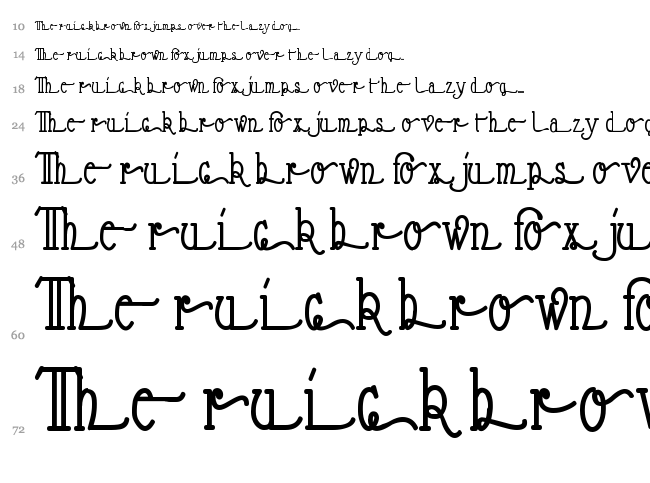 10 The ruick brown fox jumps over the lazy dog
14 The ruick brown fox jumps over the lazy dog
18 The ruick brown fox jumps over the lazy dog
24 The ruick brown fox jumps over the lazy dog
36 The ruick brown fox jumps ove
48 The ruick brown fox ju
60 The ruick brown fo
72 The ruick brow